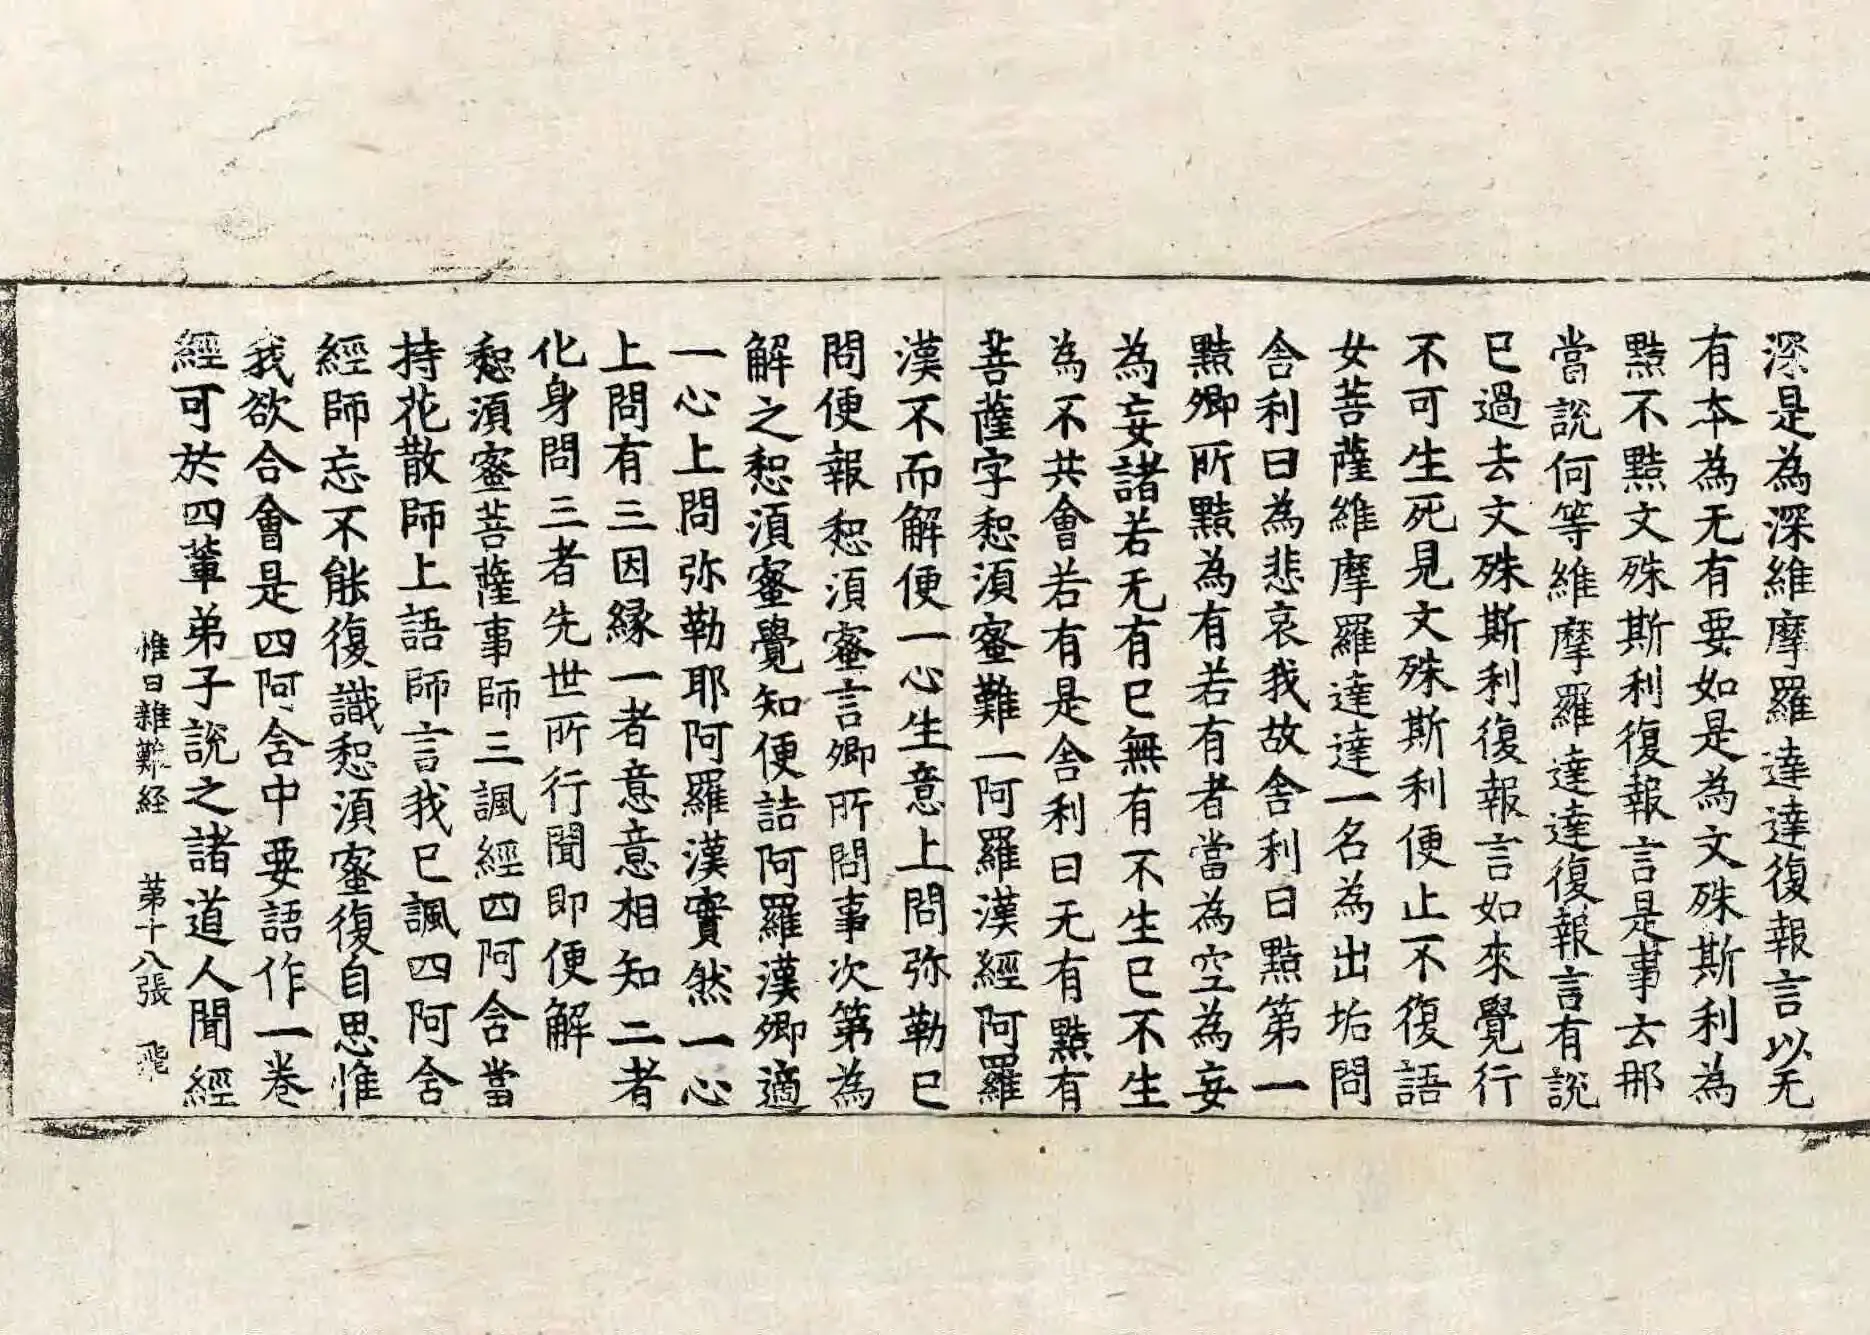 深是為深維摩羅達達復報言以无
有本為无有要如是為文殊斯利為
黠不黠文殊斯利復報言是事去那
當說何等維摩羅達達復報言有說
已過去文殊斯利復報言如來覺行
不可生死見文殊斯利便止不復語
女菩薩維摩羅達達一名為出垢問
舍利曰為悲哀我故舍利曰黠第一
黠卿所黠為有若有者當為空為妄
為妄諸若无有已無有不生已不生
為不共會若有是舍利曰无有黠有
菩薩字惒須蜜難一阿羅漢經阿羅
漢不而解便一心生意上問弥勒已
問便報惒須蜜言卿所問事次第為
解之惒須蜜覺知便詰阿羅漢卿適
一心上問弥勒耶阿羅漢實然一心
上問有三因緣一者意意相知二者
化身問三者先世所行聞即便解
惒須蜜菩薩事師三諷經四阿含當
持花散師上語師言我已諷四阿含
經師忘不能復識惒須蜜復自思惟
我欲合會是四阿含中要語作一卷
經可於四輩弟子說之諸道人聞經
惟日雜難経 第十八張 飛